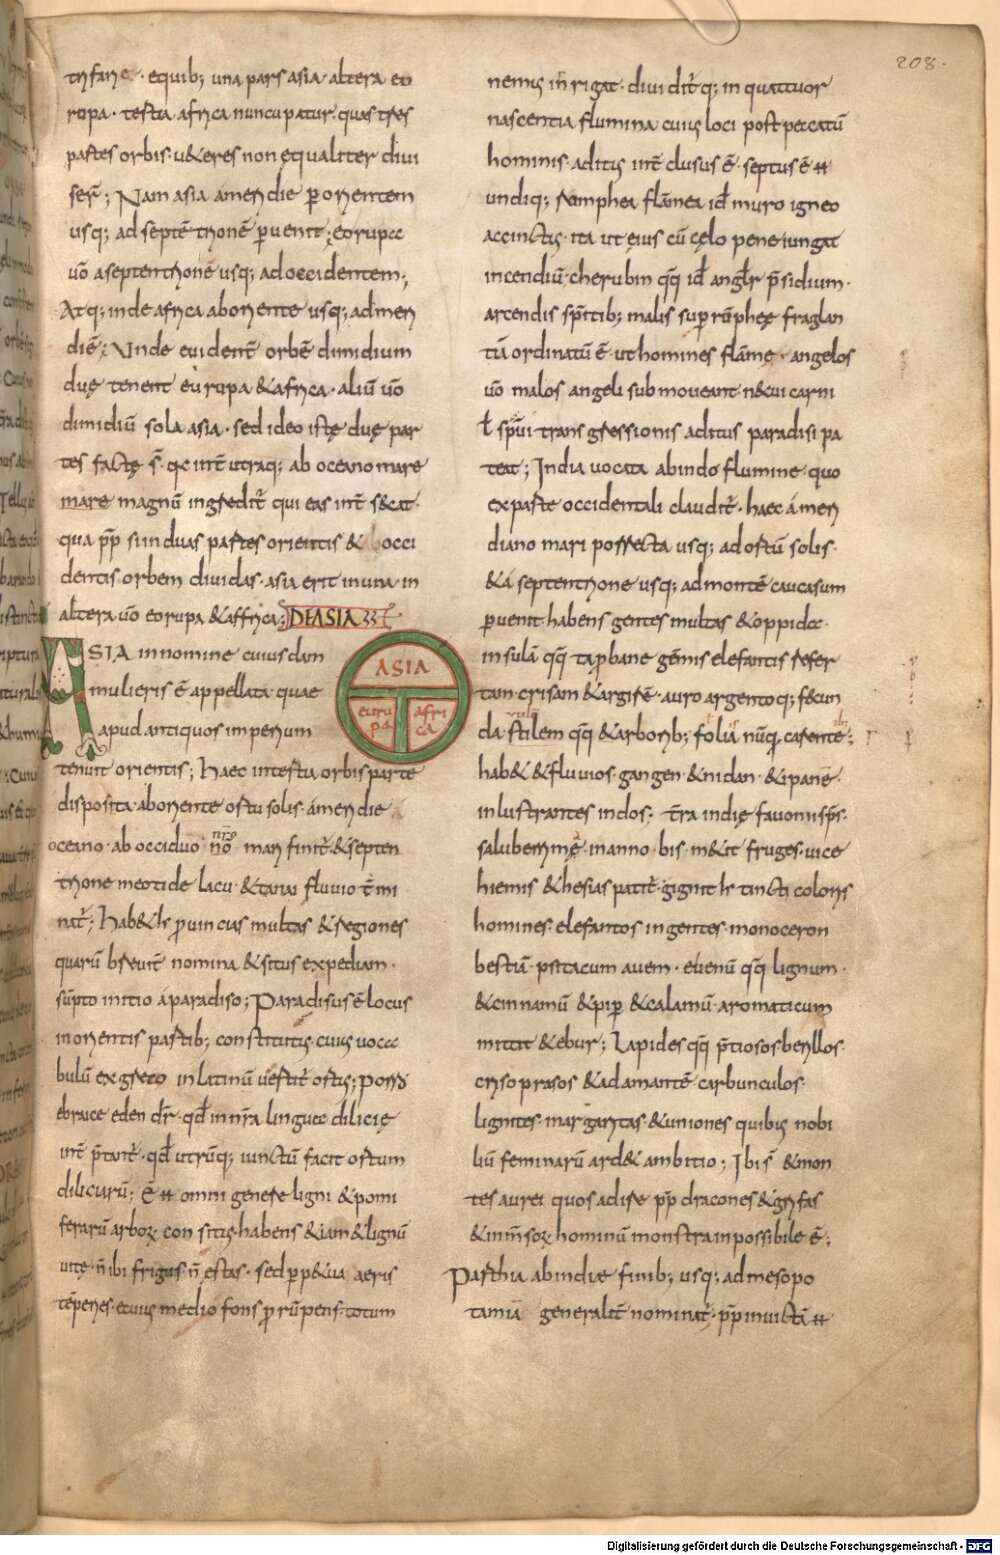 trifarie · equib; una pars asia · altera eu
ropa · tertia africa nuncupatur · quas tres
partes orbis · u&eres non ęqualiter diui
serꝶ; Nam asia ámeridie ꝑ orientem
usq; ad septē trionē ꝑuenit; eorupa
uō aseptentrionē usq; adoccidentem;
Atq; inde africa aboriente usq; admeri
diē; Vnde euident̄ orbē dimidium
duę tenent europa &africa · aliū uō
dimidiū sola asia · sed ideo istę duę par
tes factę s̄ · qa int̄ utraq; ab oceano mare
mare magnū ingredit̄ qui eas int̄ s&cat ·
qua pp̄ si in duas partes orientis & occi
dentis orbem diuidas · asia erit in una · in
altera uō eorupa &affrica; DE ASIA
ASIA innomine cuiusdam
mulieris ē appellata quae
apud antiquos imperium
tenuit orientis; Haec intertia orbis parte
disposita · áboriente ortu solis · ámeridie
oceano · ab occiduo nr̄o mari finit̄ &septen
trione meotide lacu · &tanai fluuio t̄mi
nat̄; Hab& h prouincias multas &regiones
quarū breuit̄ nomina &situs expediam ·
sūpto initio áparadiso; Paradisus ē locus
inorientis partib; constitutus · cuius uoca
bulū exgreco inlatinū uertit̄ ortus; porro
ebraice eden dr̄ · qd̄ in nr̄a lingua dilicię
int̄ p̄tat̄ · qd̄ utrūq; iunctū facit ortum
diliciarū; Ē ħ omni genere ligni &pomi
ferarū arboꝝ con situs · habens &iam &lignū
uitę · ñ ibi frigus ñ ęstas · sed perp&ua aeris
tēperies · ecuius medio fons prorūpens · totum
nemus inrigat · diuiditq; in quattuor
nascentia flumina cuius loci post peccatū
hominis · aditus int̄ clusus ē · septus ē ħ
undiq; romphea flāmea id muro igneo
accinctus · ita ut eius cū cęlo pene iungat
incendiū · cherubin qq̄ id anglr̄ p̄sidium ·
arcendis sp̄itib; malis super rūpheę fraglan
tiā ordinatū ē · ut homines flāmę · angelos
uō malos angeli submoueant · n&cui carni
ł sp̄ui transgressionis aditus paradisi pa
teat; India uocata abindo flumine · quo
exparte occidentali claudit̄ · haec ámeri
diano mari porrecta usq; ad ortū solis ·
&á septentrione usq; admontē caucasum
ꝑuenit habens gentes multas &oppida ·
insulā qq̄ taprbane gēmis elefantis refer
tam · crisam &argirē · auro argentoq; fecun
da · stilem qq̄ &arborib; foliū nūq̄ carente;
hab& &fluuios · gangen · &nidan · &ipanē ·
inlustrantes indos · tr̄a indię fauonii sp̄s ·
saluberrimę · inanno · bis · m&it fruges · uice
hiemis &hesias patit̄ · gignit h tincti coloris
homines · elefantos ingentes · monoceron
bestiā · psitacum auem · ebenū qq̄ lignum ·
&cinnamū &piꝑ &calamū · aromaticum
mittit &ebur; Lapides qq̄ p̄tiosos · berillos ·
criso prasos &adamantē carbunculos
lignites · margaritas · &uniones quibus nobi
liū feminarū ard& ambitio; Ibi s̄ &mon
tes aurei quos adire pp̄ dracones &grifas
&inm̄soꝝ hominū monstra inpossibile ē;
Parthia abindie finib; usq; admesopo
tamiā generalit̄ nominat̄ · pp̄ inuictā ħ
ASIA
euru
pa
afri
ca
208.
Digitalisierung gefördert durch die Deutsche Forschungsgemeinschaft - DFG